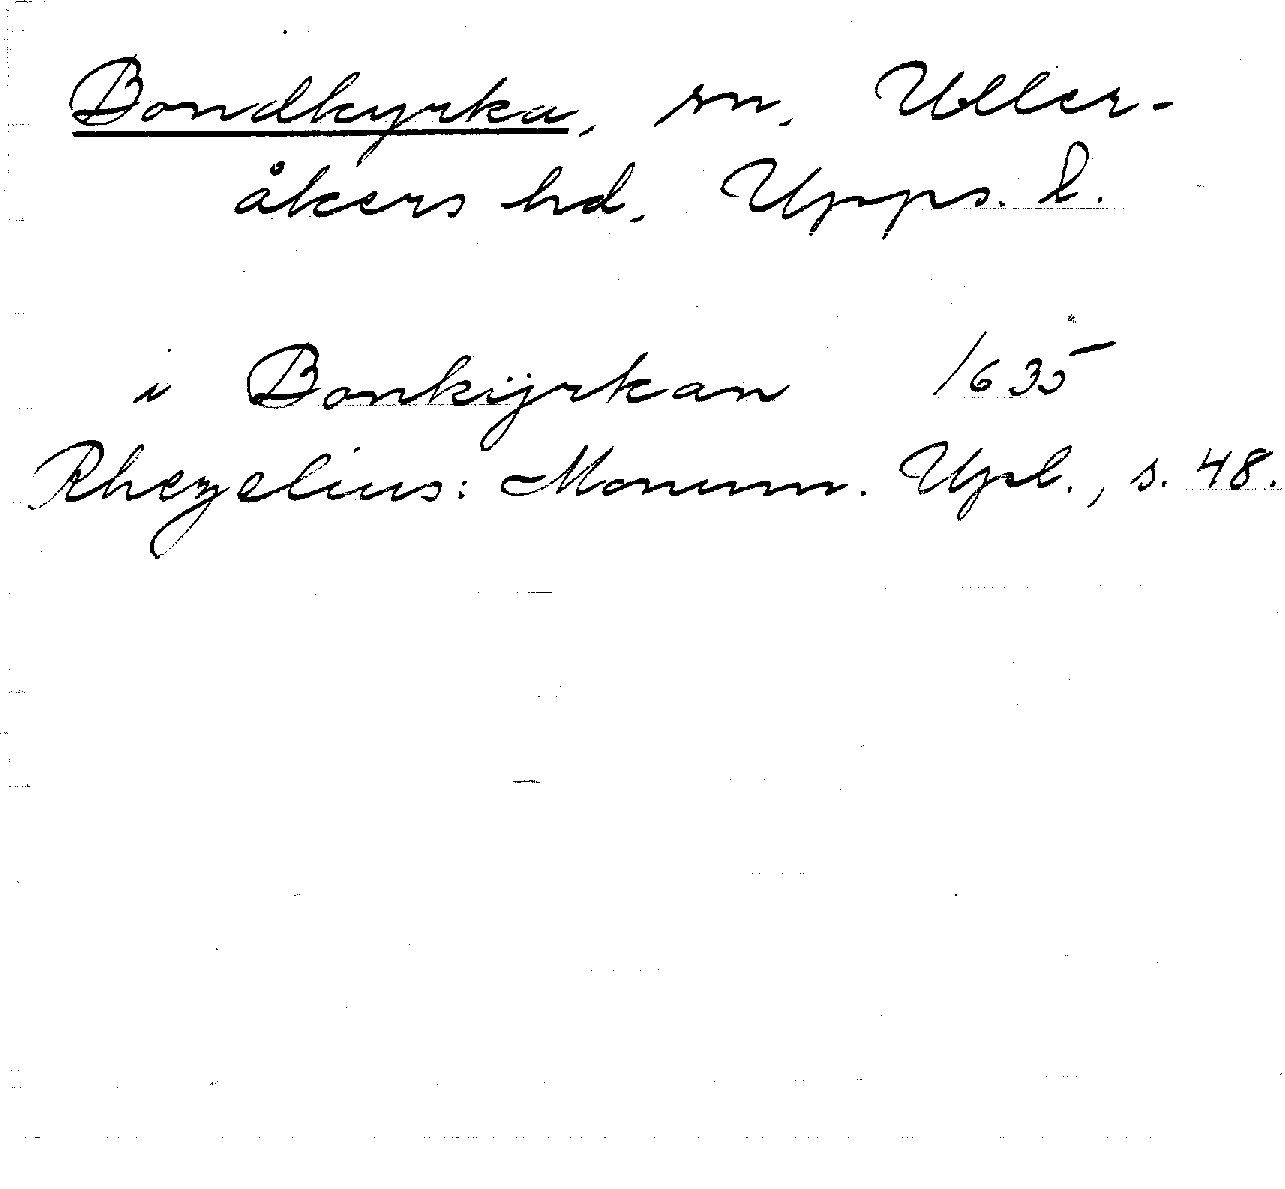 Bondkyrka, sn, Uller-
åkers hd, Upps. l.
i Bonkÿrkan 1635
Rhezelius: Monum. Upl., s. 48.